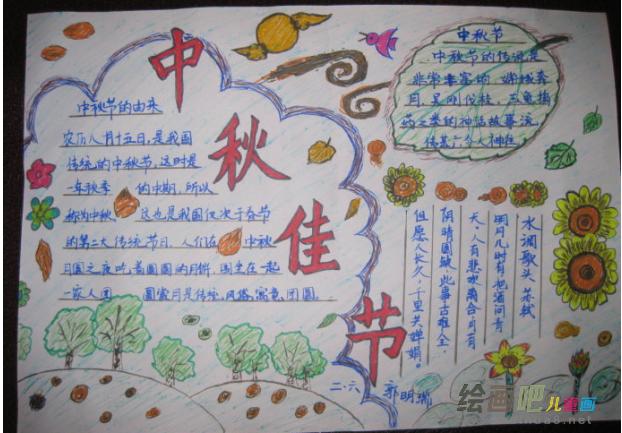 中秋佳节
中秋节的由来
农历八月十五日,是我国
传统的中秋节,这时是
一年秋季 的中期,所以
称为中秋 这也是我国仅次于春节
的第二大传统节日,人们在 中秋
月圆之夜吃着圆圆的月饼,围坐在一起
一家人团 圆赏月是传统,风格,寓意,团圆。
中秋节
中秋节的传说是
非常丰富的,嫦娥奔
月,吴刚伐桂,玉兔捣
药之类的神话故事流
传甚广令人神往
水调歌头 苏轼
明月几时有把酒问青
天,人有悲欢离合月有
阴晴圆缺,此事古难全,
但愿人长久,千里共婵娟。
二·六 郭明瑞
绘画吧 儿童画